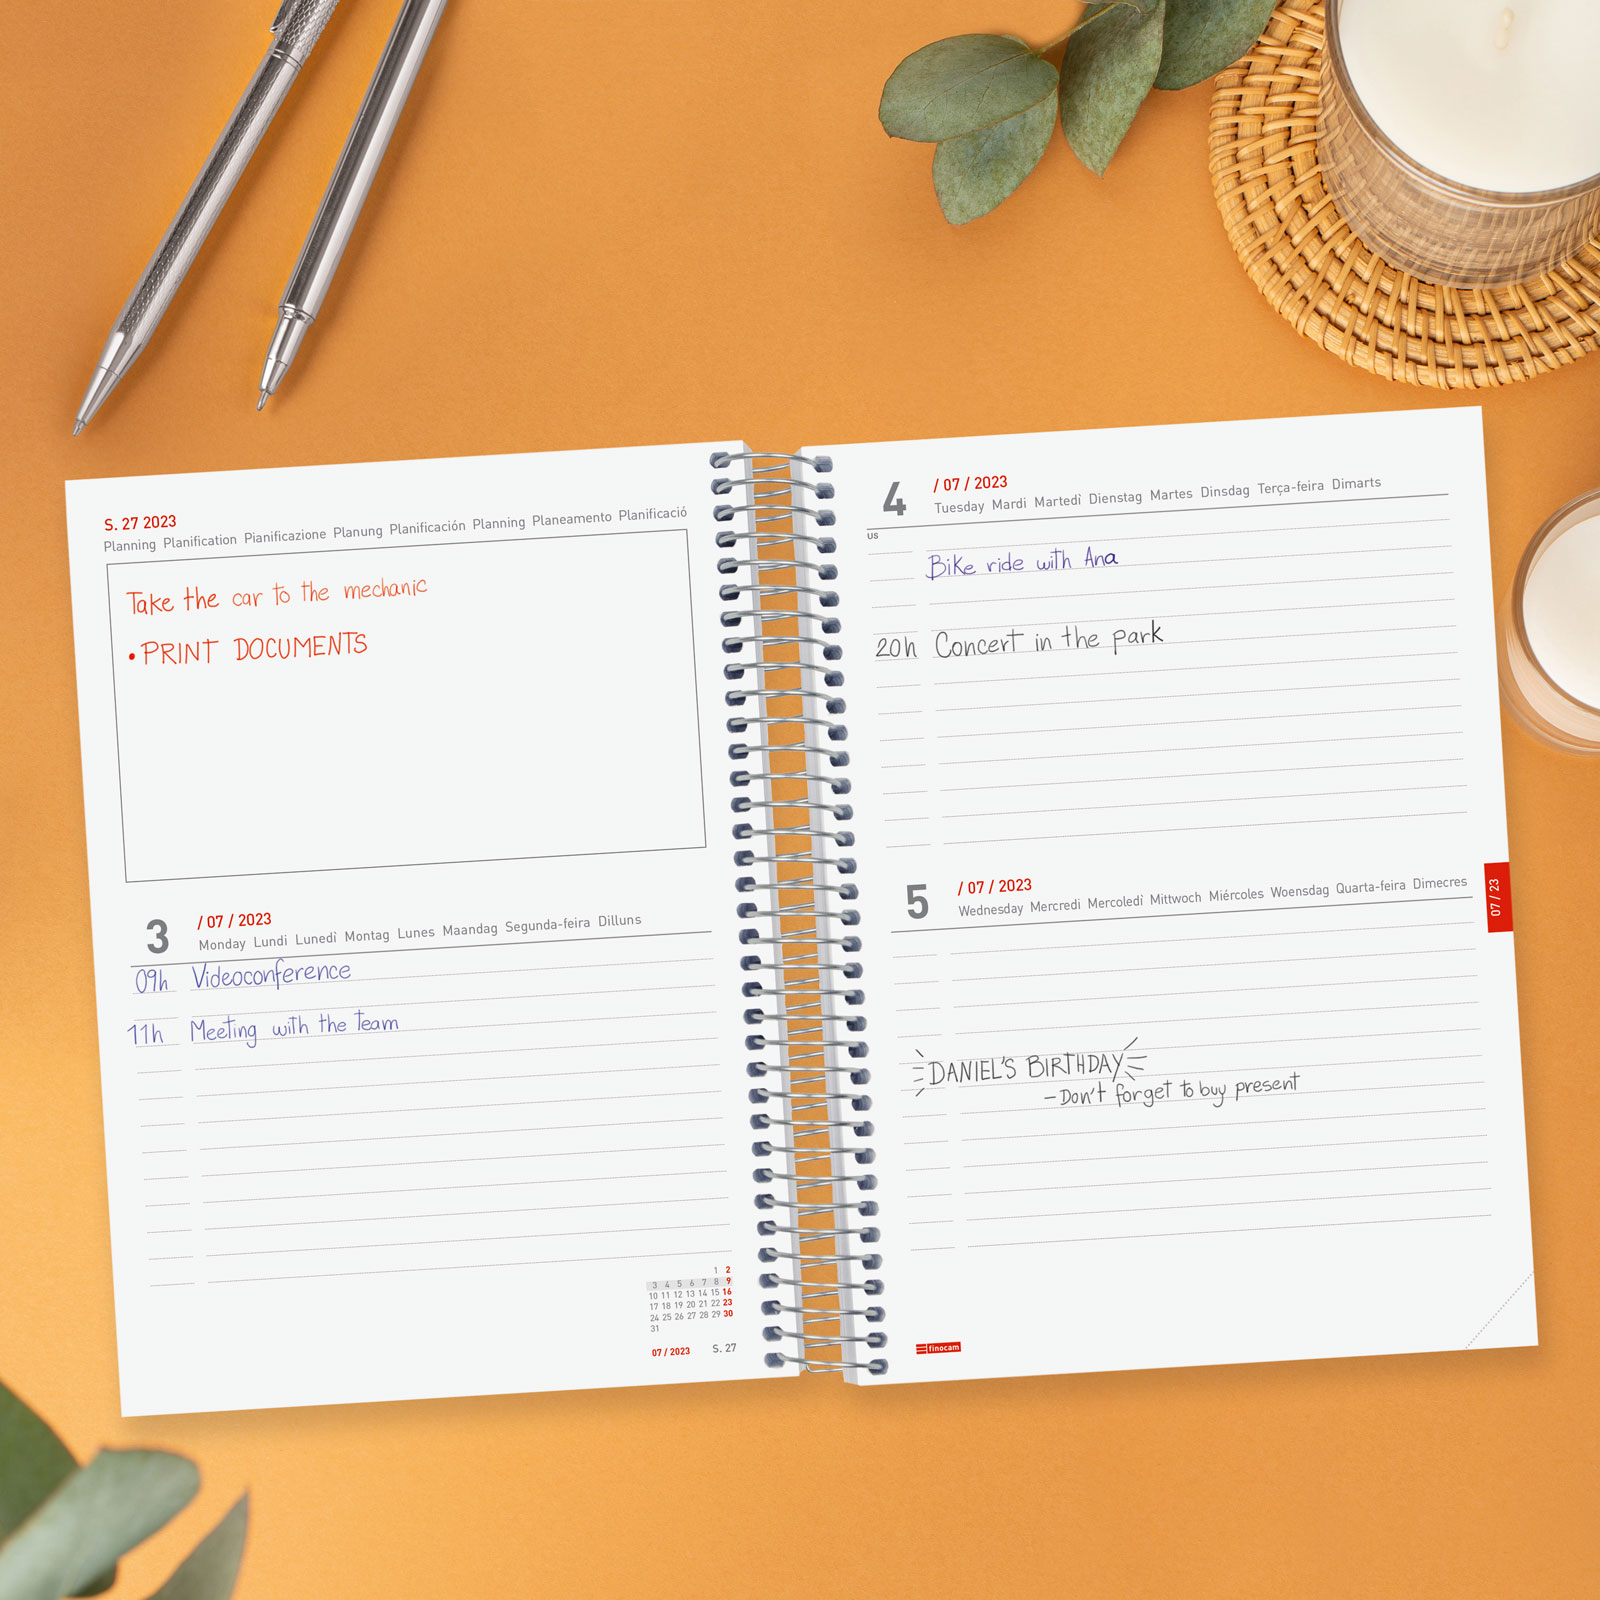 S. 27 2023
Planning Planification Pianificazione Planung Planificación Planning Planeamento Planificació
Take the car to the mechanic
• PRINT DOCUMENTS
3 / 07 / 2023
Monday Lundi Lunedì Montag Lunes Maandag Segunda-feira Dilluns
09h Videoconference
11h Meeting with the team
1 2
3 4 5 6 7 8 9
10 11 12 13 14 15 16
17 18 19 20 21 22 23
24 25 26 27 28 29 30
31
07 / 2023 S. 27
4 / 07 / 2023
Tuesday Mardi Martedì Dienstag Martes Dinsdag Terça-feira Dimarts
US
Bike ride with Ana
20h Concert in the park
5 / 07 / 2023
Wednesday Mercredi Mercoledì Mittwoch Miércoles Woensdag Quarta-feira Dimecres
07 / 23
DANIEL'S BIRTHDAY
- Don't forget to buy present
finocam